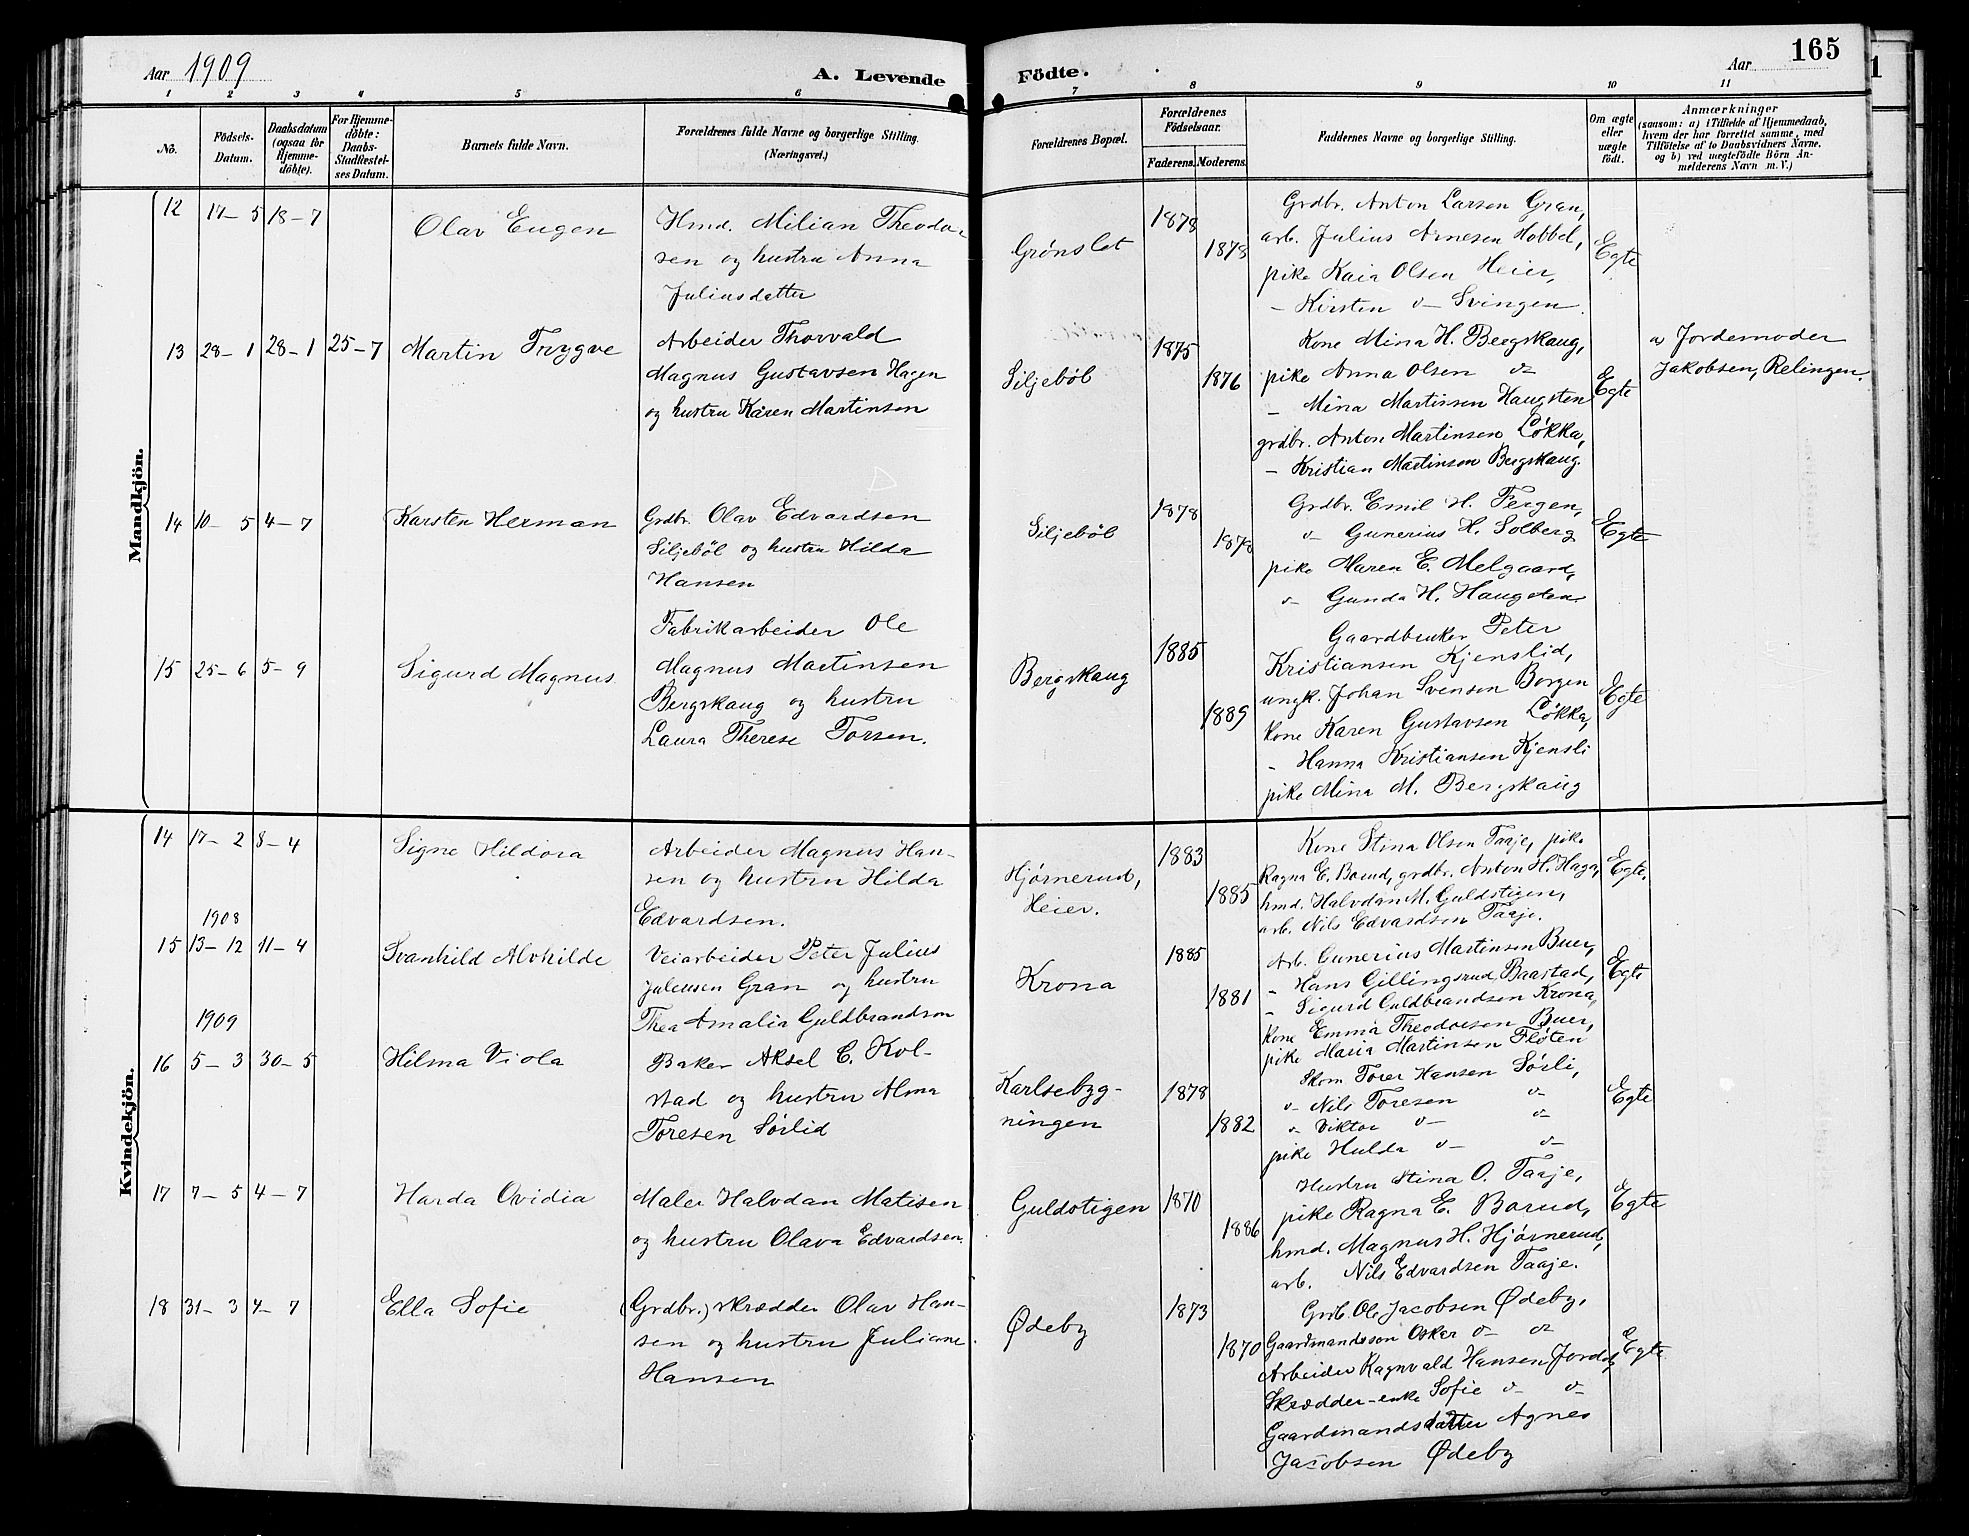 Aar 1909
A. Levende
Födte.
Aar
165
1 2 3 4 5 6 7 8 9 10 11
Nö.
Födsels-
Datum.
Daabsdatum
(ogsaa for
Hjemme-
döbte).
For Hjemme-
döbte:
Daabs-
Stadfæstel-
ses Datum.
Barnets fulde Navn.
Forældrenes fulde Navne og borgerlige Stilling.
(Næringsvei.)
Forældrenes Bopæl.
Forældrenes
Födselsaar.
Faderens. Moderens.
Faddernes Navne og borgerlige Stilling.
Om ægte
eller
uægte
födt.
Anmærkninger
(saasom: a) i Tilfælde af Hjemmedaab,
hvem der har forrettet samme, med
Tilföielse af to Daabsvidners Navne.
og b) ved uægtefödte Börn An-
melderens Navn m. V.)
Mandkjön.
12 17-5 18-7
Olav Eugen
Hmd. Milian Theodor-
sen og hustru Anna
Juliusdatter
Grønslet
1878
1878
Grdbr. Anton Larsen Gran,
arb. Julius Arnesen Hobbel,
pike Kaia Olsen Heier,
- Kirsten v- Svingen.
Egte
13 28-1 28-1 25-7
Martin Trygve
Arbeider Thorvald
Magnus Gustavsen Hagen
og hustru Karen Martinsen
Siljebøl
1875
1876
Kone Mina H. Bergskaug,
pike Anna Olsen v-
- Mina Martinsen Haugsten
grdbr. Anton Martinsen Løkka,
- Kristian Martinsen Bergskaug.
Egte
a Jordemoder
Jakobsen, Relingen.
14 10-5 4-7
Karsten Herman
Grdbr. Olav Edvardsen
Siljebøl og hustru Hilda
Hansen
Siljebøl
1878
1878
Grdbr. Emil H. Fergen,
v- Gunerius H. Solberg
pike Maren E. Melgaard,
v- Gunda H. Haugsten
Egte
15 25-6 5-9
Sigurd Magnus
Fabrikarbeider Ole
Magnus Martinsen
Bergskaug og hustru
Laura Therese Torsen.
Bergskaug
1885
1889
Gaardbruker Peter
Kristiansen Kjenslid,
ungk. Johan Svensen Borgen
kone Karen Gustavsen Løkka,
- Hanna Kristiansen Kjensli
pike Mina M. Bergskaug
Egte
Kvindekjön.
14 17-2 8-4
Signe Hildora
Arbeider Magnus Han-
sen og hustru Hilda
Edvardsen.
Hjørnerud,
Heier.
1883
1885
Kone Stina Olsen Taaje, pike
Ragna E. Borud, grdbr. Anton H. Haga,
hmd. Halvdan M. Guldstigen,
arb. Nils Edvardsen Taaje.
Egte.
1908
15 13-12 11-4
Svanhild Alvhilde
Veiarbeider Peter Julius
Julensen Gran og hustru
Thea Amalia Guldbrandsen
Krona
1885
1881
Arb. Gunerius Martinsen Buer,
- Hans Gillingsrud, Baastad,
- Sigurd Guldbrandsen Krona,
kone Emma Theodorsen Buer,
pike Maria Martinsen Fløten
Egte
1909
16 5-3 30-5
Hilma Viola
Baker Aksel C. Kol-
stad og hustru Alma
Toresen Sørlid
Karlsebyg-
ningen
1878
1882
Skom. Torer Hansen Sørli,
v- Nils Toresen v-
v- Viktor v- v-
pike Hulda v- v-
Egte
17 7-5 4-7
Harda Ovidia
Maler Halvdan Matisen
og hustru Olava Edvardsen.
Guldstigen
1870
1886
Hustru Stina O. Taaje,
pike Ragna E. Borud,
hmd. Magnus H. Hjørnerud,
arb. Nils Edvardsen Taaje.
Egte
18 31-3 4-7
Ella Sofie
(Grdbr.) skrædder Olav Han-
sen og hustru Juliane
Hansen
Ødeby
1873
1870
Grdb. Ole Jacobsen Ødeby,
Gaardmandssøn Oskar v- v-
Arbeider Ragnvald Hansen
Skrædder-enke Sofie v- v-
Gaardmandsdatter Agnes
Jacobsen Ødeby
Egte